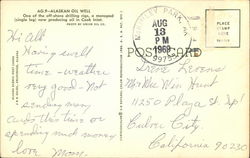 AG.9–ALASKAN OIL WELL
One of the off-shore drilling rigs, a monopod
(single leg) now producing oil in Cook Inlet.
PARK,
AUG
13
PM
1968
POSTCARD
Hi All
Having swell
time – weather
very good – Not
sending many
cards this time or
spending much money
love Mom
Irene Levens
Mr & Mrs Win Hunt
11250 Playa St.
Culver City
California 90230